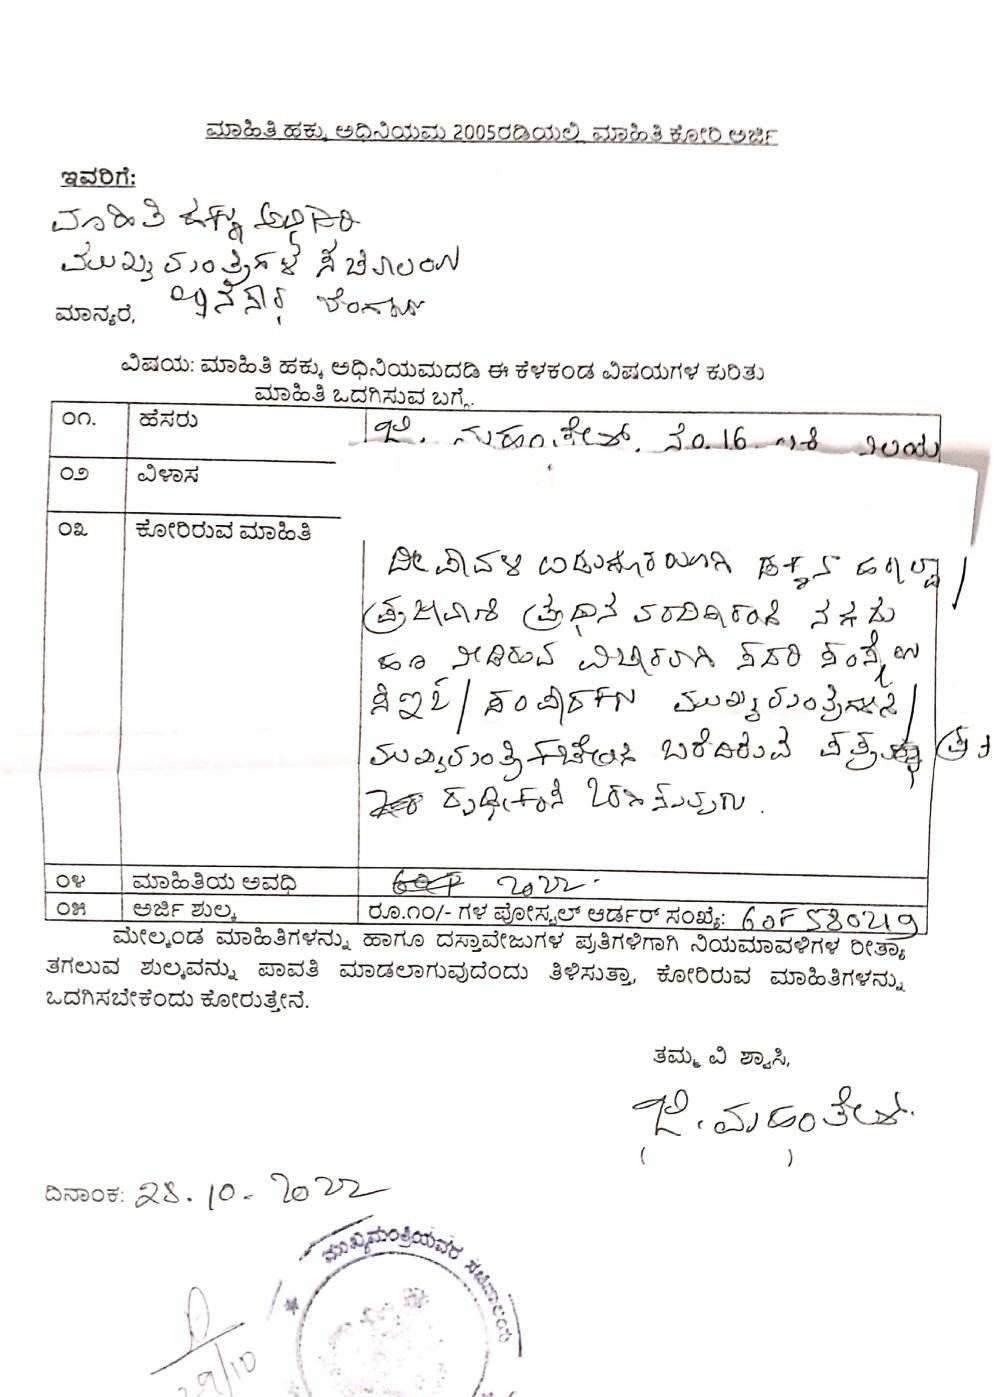 ಮಾಹಿತಿ ಹಕ್ಕು ಅಧಿನಿಯಮ 2005ರಡಿಯಲ್ಲಿ ಮಾಹಿತಿ ಕೋರಿ ಅರ್ಜಿ
ಇವರಿಗೆ:
ಮಾಹಿತಿ ಹಕ್ಕು ಅಧಿಕಾರಿ
ಮುಖ್ಯಮಂತ್ರಿಗಳ ಸಚಿವಾಲಯ
ಮಾನ್ಯರೆ, ವಿಧಾನಸೌಧ ಬೆಂಗಳೂರು
ವಿಷಯ: ಮಾಹಿತಿ ಹಕ್ಕು ಅಧಿನಿಯಮದಡಿ ಈ ಕೆಳಕಂಡ ವಿಷಯಗಳ ಕುರಿತು
ಮಾಹಿತಿ ಒದಗಿಸುವ ಬಗ್ಗೆ.
೦೧. ಹೆಸರು ಜೆ. ಮಹಂತೇಶ್. ನಂ.16
೦೨ ವಿಳಾಸ
೦೩ ಕೋರಿರುವ ಮಾಹಿತಿ
ದೀಪಾವಳಿ ಉಡುಗೊರೆಯಾಗಿ
ಪ್ರಜಾವಾಣಿ ಪ್ರಧಾನ ವರದಿಗಾರರಿಗೆ ನಗದು
ಹಣ ನೀಡಿರುವ ವಿಚಾರವಾಗಿ ಸದರಿ ಸಂಸ್ಥೆಯ
ಸಿಇಒ/ಸಂಪಾದಕರು ಮುಖ್ಯಮಂತ್ರಿಗಳಿಗೆ/
ಮುಖ್ಯಮಂತ್ರಿ ಕಚೇರಿಗೆ ಬರೆದಿರುವ ಪತ್ರ
ದೃಢೀಕರಿಸಿ ಒದಗಿಸುವುದು.
೦೪ ಮಾಹಿತಿಯ ಅವಧಿ 2022.
೦೫ ಅರ್ಜಿ ಶುಲ್ಕ ರೂ.೧೦/- ಗಳ ಪೋಸ್ಟಲ್ ಆರ್ಡರ್ ಸಂಖ್ಯೆ: 60F 580219
ಮೇಲ್ಕಂಡ ಮಾಹಿತಿಗಳನ್ನು ಹಾಗೂ ದಸ್ತಾವೇಜುಗಳ ಪ್ರತಿಗಳಿಗಾಗಿ ನಿಯಮಾವಳಿಗಳ ರೀತ್ಯಾ
ತಗಲುವ ಶುಲ್ಕವನ್ನು ಪಾವತಿ ಮಾಡಲಾಗುವುದೆಂದು ತಿಳಿಸುತ್ತಾ, ಕೋರಿರುವ ಮಾಹಿತಿಗಳನ್ನು
ಒದಗಿಸಬೇಕೆಂದು ಕೋರುತ್ತೇನೆ.
ತಮ್ಮ ವಿ ಶ್ವಾಸಿ,
ಜೆ. ಮಹಂತೇಶ್.
( )
ದಿನಾಂಕ: 28.10.2022
ಮುಖ್ಯಮಂತ್ರಿಯವರ ಸಚಿವಾಲಯ
29/10